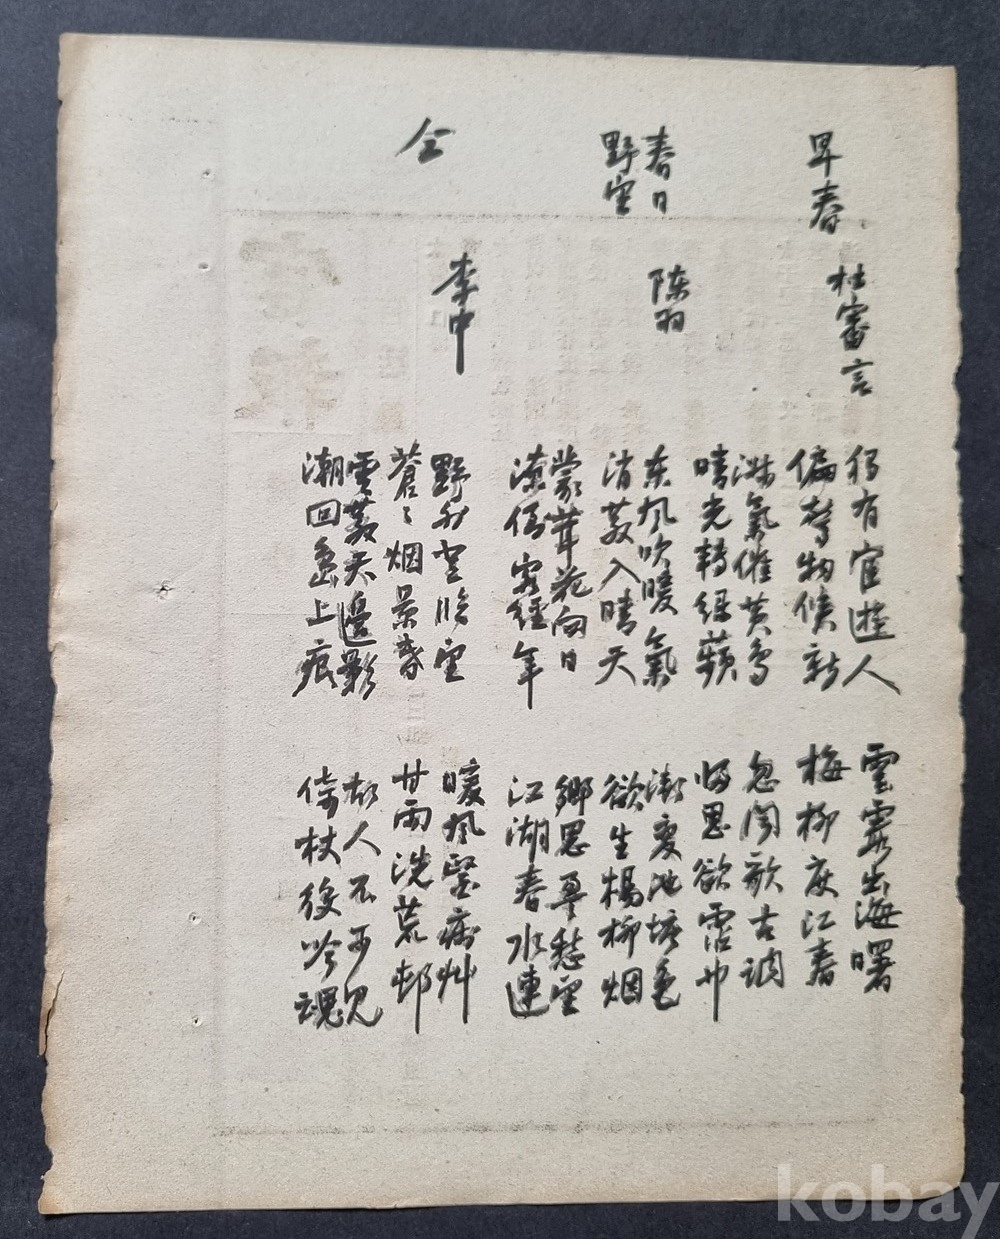 早春
杜審言
独有宦遊人 雲霞出海曙
偏驚物候新 梅柳度江春
淑氣催黄鸟 忽闻歌古调
晴光轉緑蘋 歸思欲霑巾
春日
野望
陈羽
东风吹暖氣 漸变池塘色
消散入晴天 欲生楊柳烟
蒙茸花向日 鄉思愁望
潦倒客經年 江湖春水連
仝
李中
野外登臨望 暖风醫病艸
蒼々烟景昏 甘雨洗荒邨
雲散天邊影 故人不可見
潮回島上痕 倚杖役吟魂
kobay